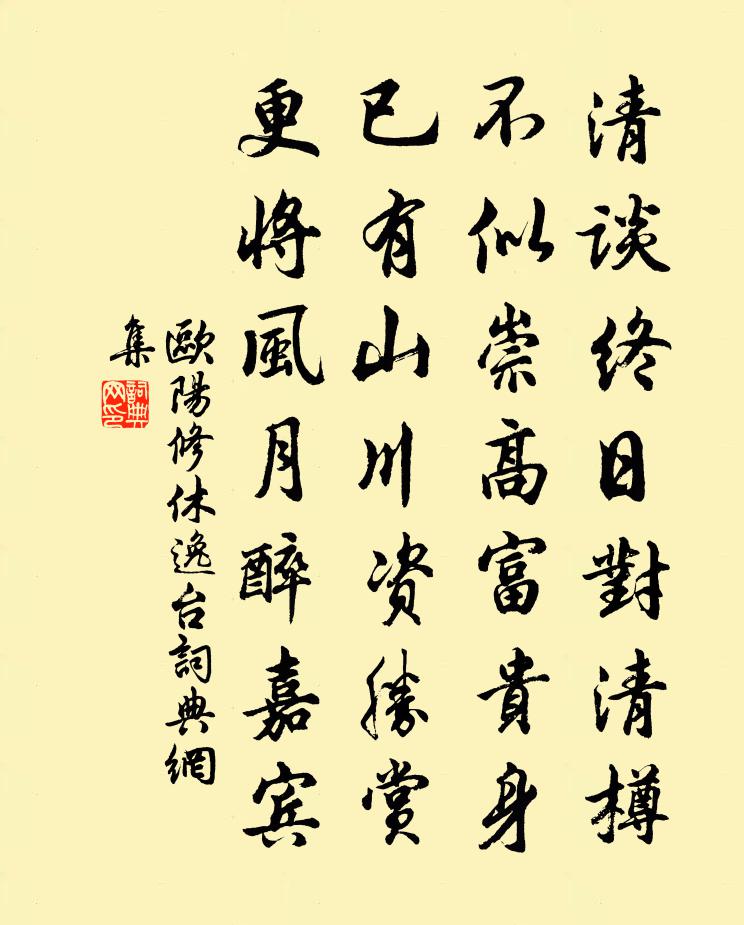 清談終日對清樽
不似崇高富貴身
已有山川资勝賞
更將風月醉嘉宾
歐陽修休逸台詞典網
集
詞典
网印